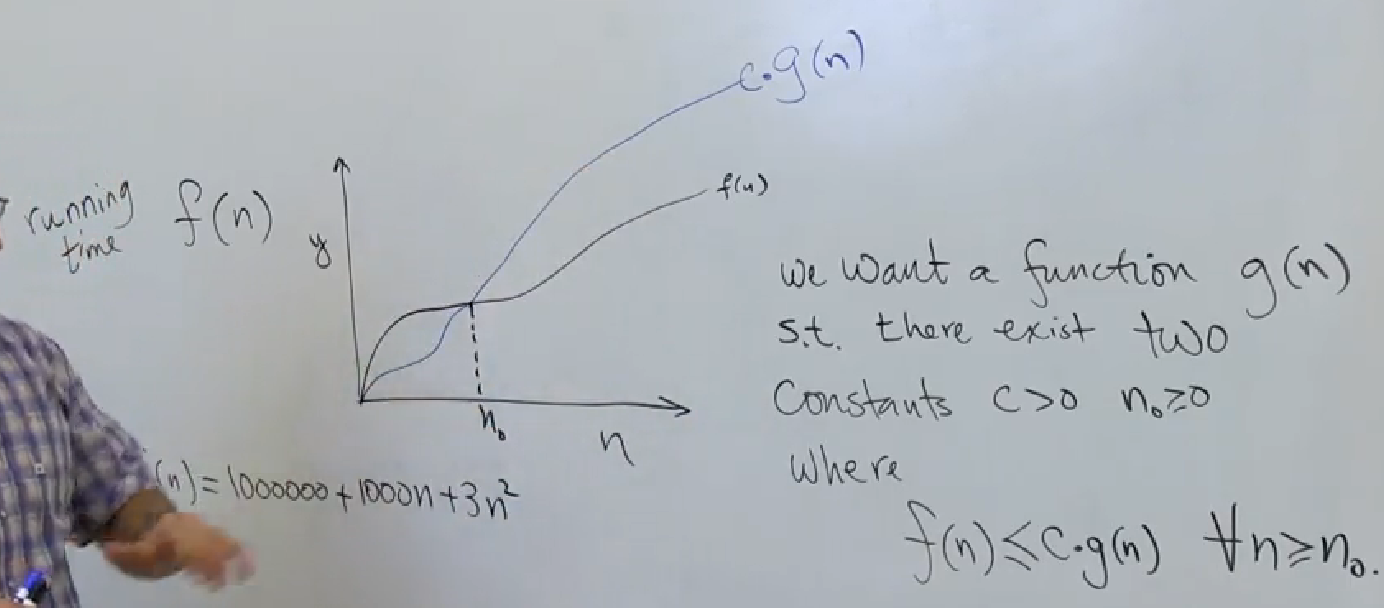 c·g(n)
running
time
f(n)
f(n)
y
n₀
n
(n)=1000000+1000n+3n²
we want a function g(n)
s.t. there exist two
Constants c>0 n₀≥0
where
f(n)≤c·g(n) ∀n≥n₀.